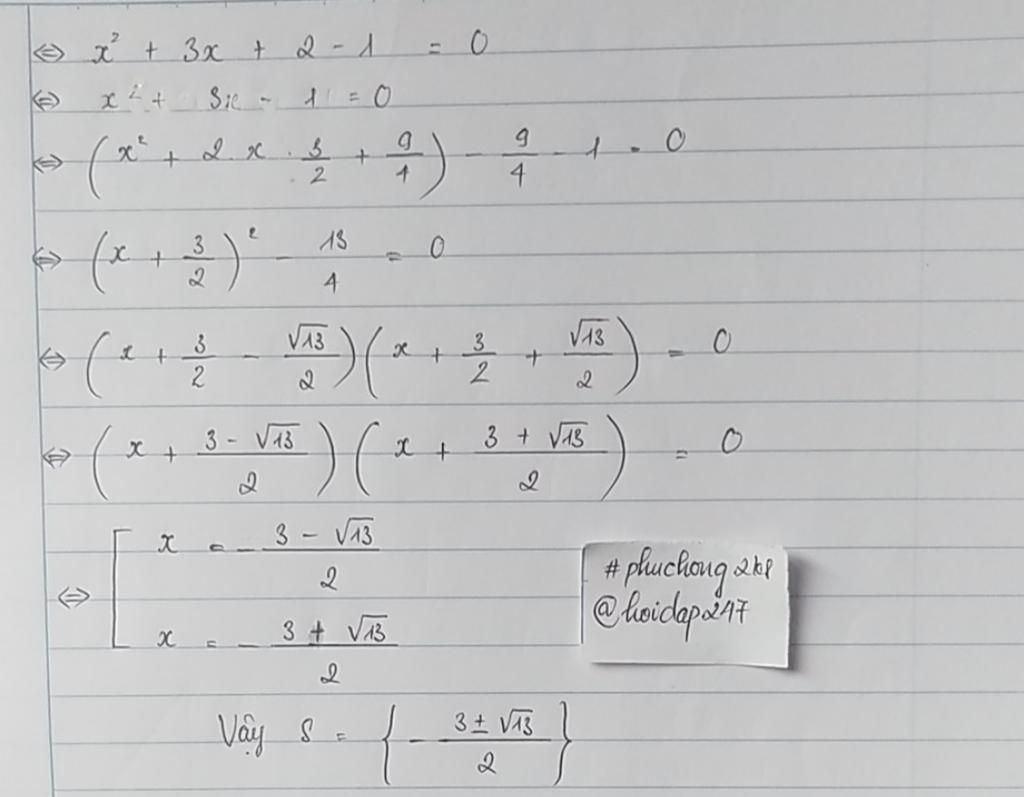 ⇔ x² + 3x + 2 - 1 = 0
⇔ x² + 3x - 1 = 0
⇔ (x² + 2.x.3/2 + 9/4) - 9/4 - 1 = 0
⇔ (x + 3/2)² - 13/4 = 0
⇔ (x + 3/2 - √13/2)(x + 3/2 + √13/2) = 0
⇔ (x + (3 - √13)/2)(x + (3 + √13)/2) = 0
⇔ [ x = - (3 - √13)/2
x = - (3 + √13)/2
#phuchong2k8
@hoidap247
Vậy S = {- (3 ± √13)/2}